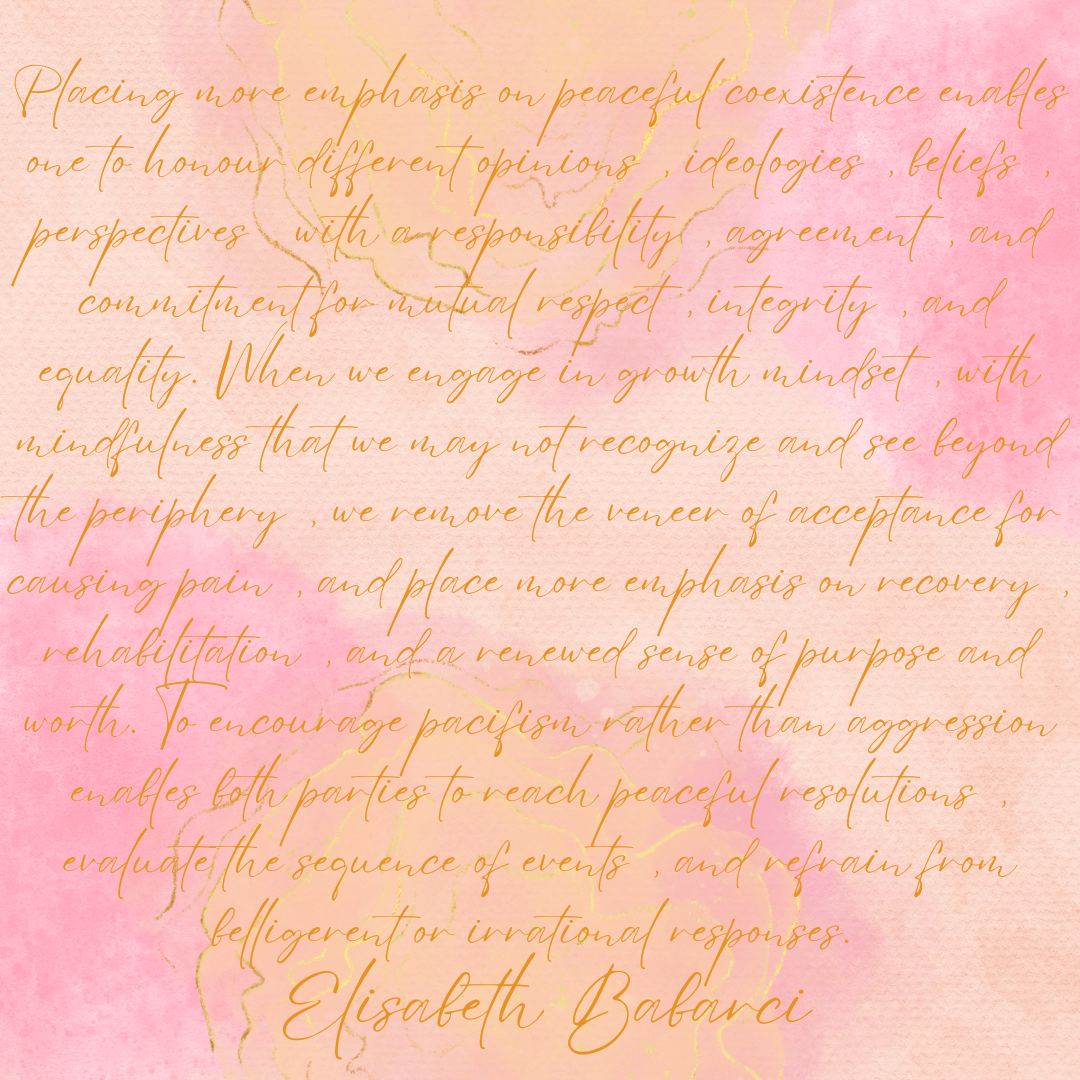 Placing more emphasis on peaceful coexistence enables
one to honour different opinions , ideologies , beliefs ,
perspectives with a responsibility , agreement , and
commitment for mutual respect , integrity , and
equality. When we engage in growth mindset , with
mindfulness that we may not recognize and see beyond
the periphery , we remove the veneer of acceptance for
causing pain , and place more emphasis on recovery ,
rehabilitation , and a renewed sense of purpose and
worth. To encourage pacifism rather than aggression
enables both parties to reach peaceful resolutions ,
evaluate the sequence of events , and refrain from
belligerent or irrational responses.
Elisabeth Babarci